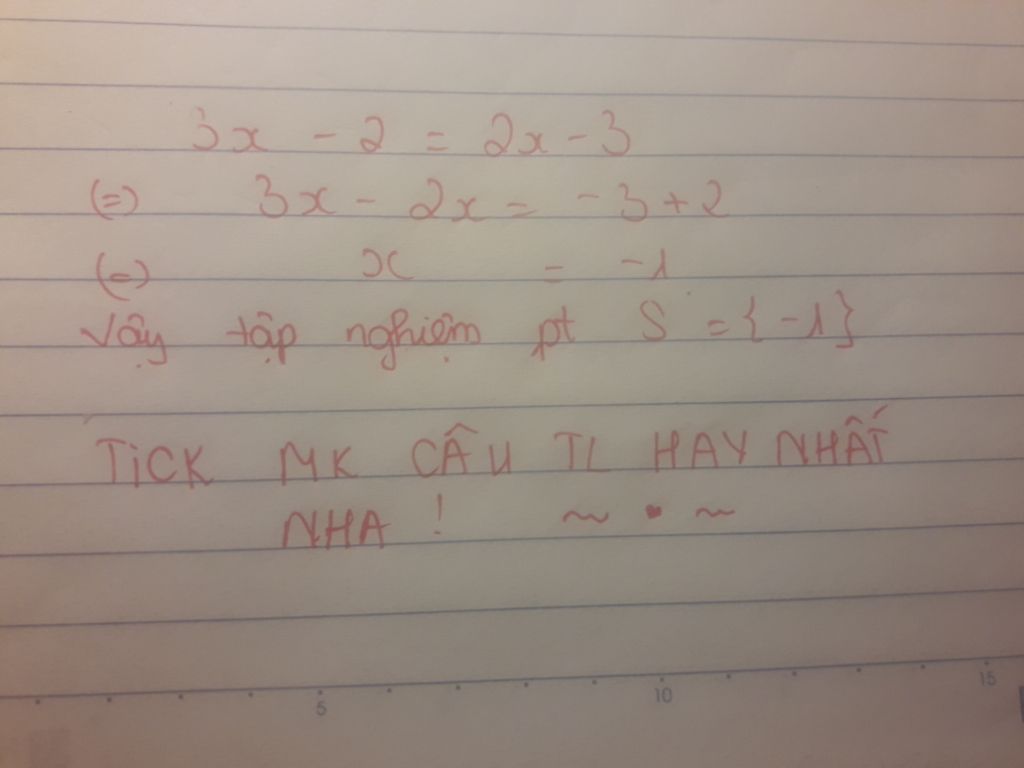 3x - 2 = 2x - 3
(=) 3x - 2x = -3 + 2
(=) x = -1
Vậy tập nghiệm pt S = {-1}
TiCK MK CÂU TL HAY NHẤT
NHA ! ~ • ~
5 10 15